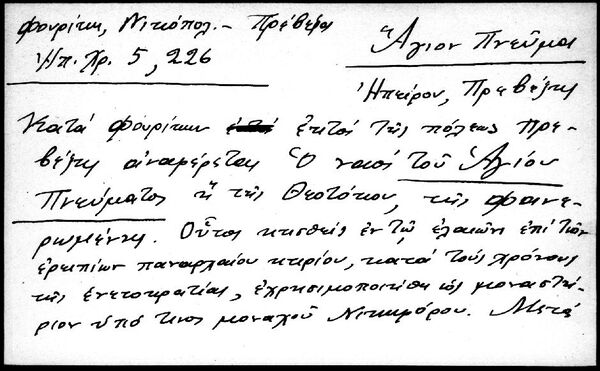 Φουρίκη, Νικόπολ. - Πρέβεζα
Ἠπ. Χρ. 5, 226
Ἅγιον Πνεῦμα
Ἠπείρου, Πρεβέζης
Κατά Φουρίκην ἐκτός τῆς πόλεως Πρε-
βέζης ἀναφέρεται Ὁ ναός τοῦ Ἁγίου
Πνεύματος ἤ τῆς Θεοτόκου, τῆς Φανε-
ρωμένης. Οὗτος κτισθείς ἐν τῷ ἐλαιῶνι ἐπί τῶν
ἐρειπίων παναρχαίου κτιρίου, κατά τούς χρόνους
τῆς ἑνετοκρατίας, ἐχρησιμοποιήθη ὡς μοναστή-
ριον ὑπό τινος μοναχοῦ Νικηφόρου. Μετά